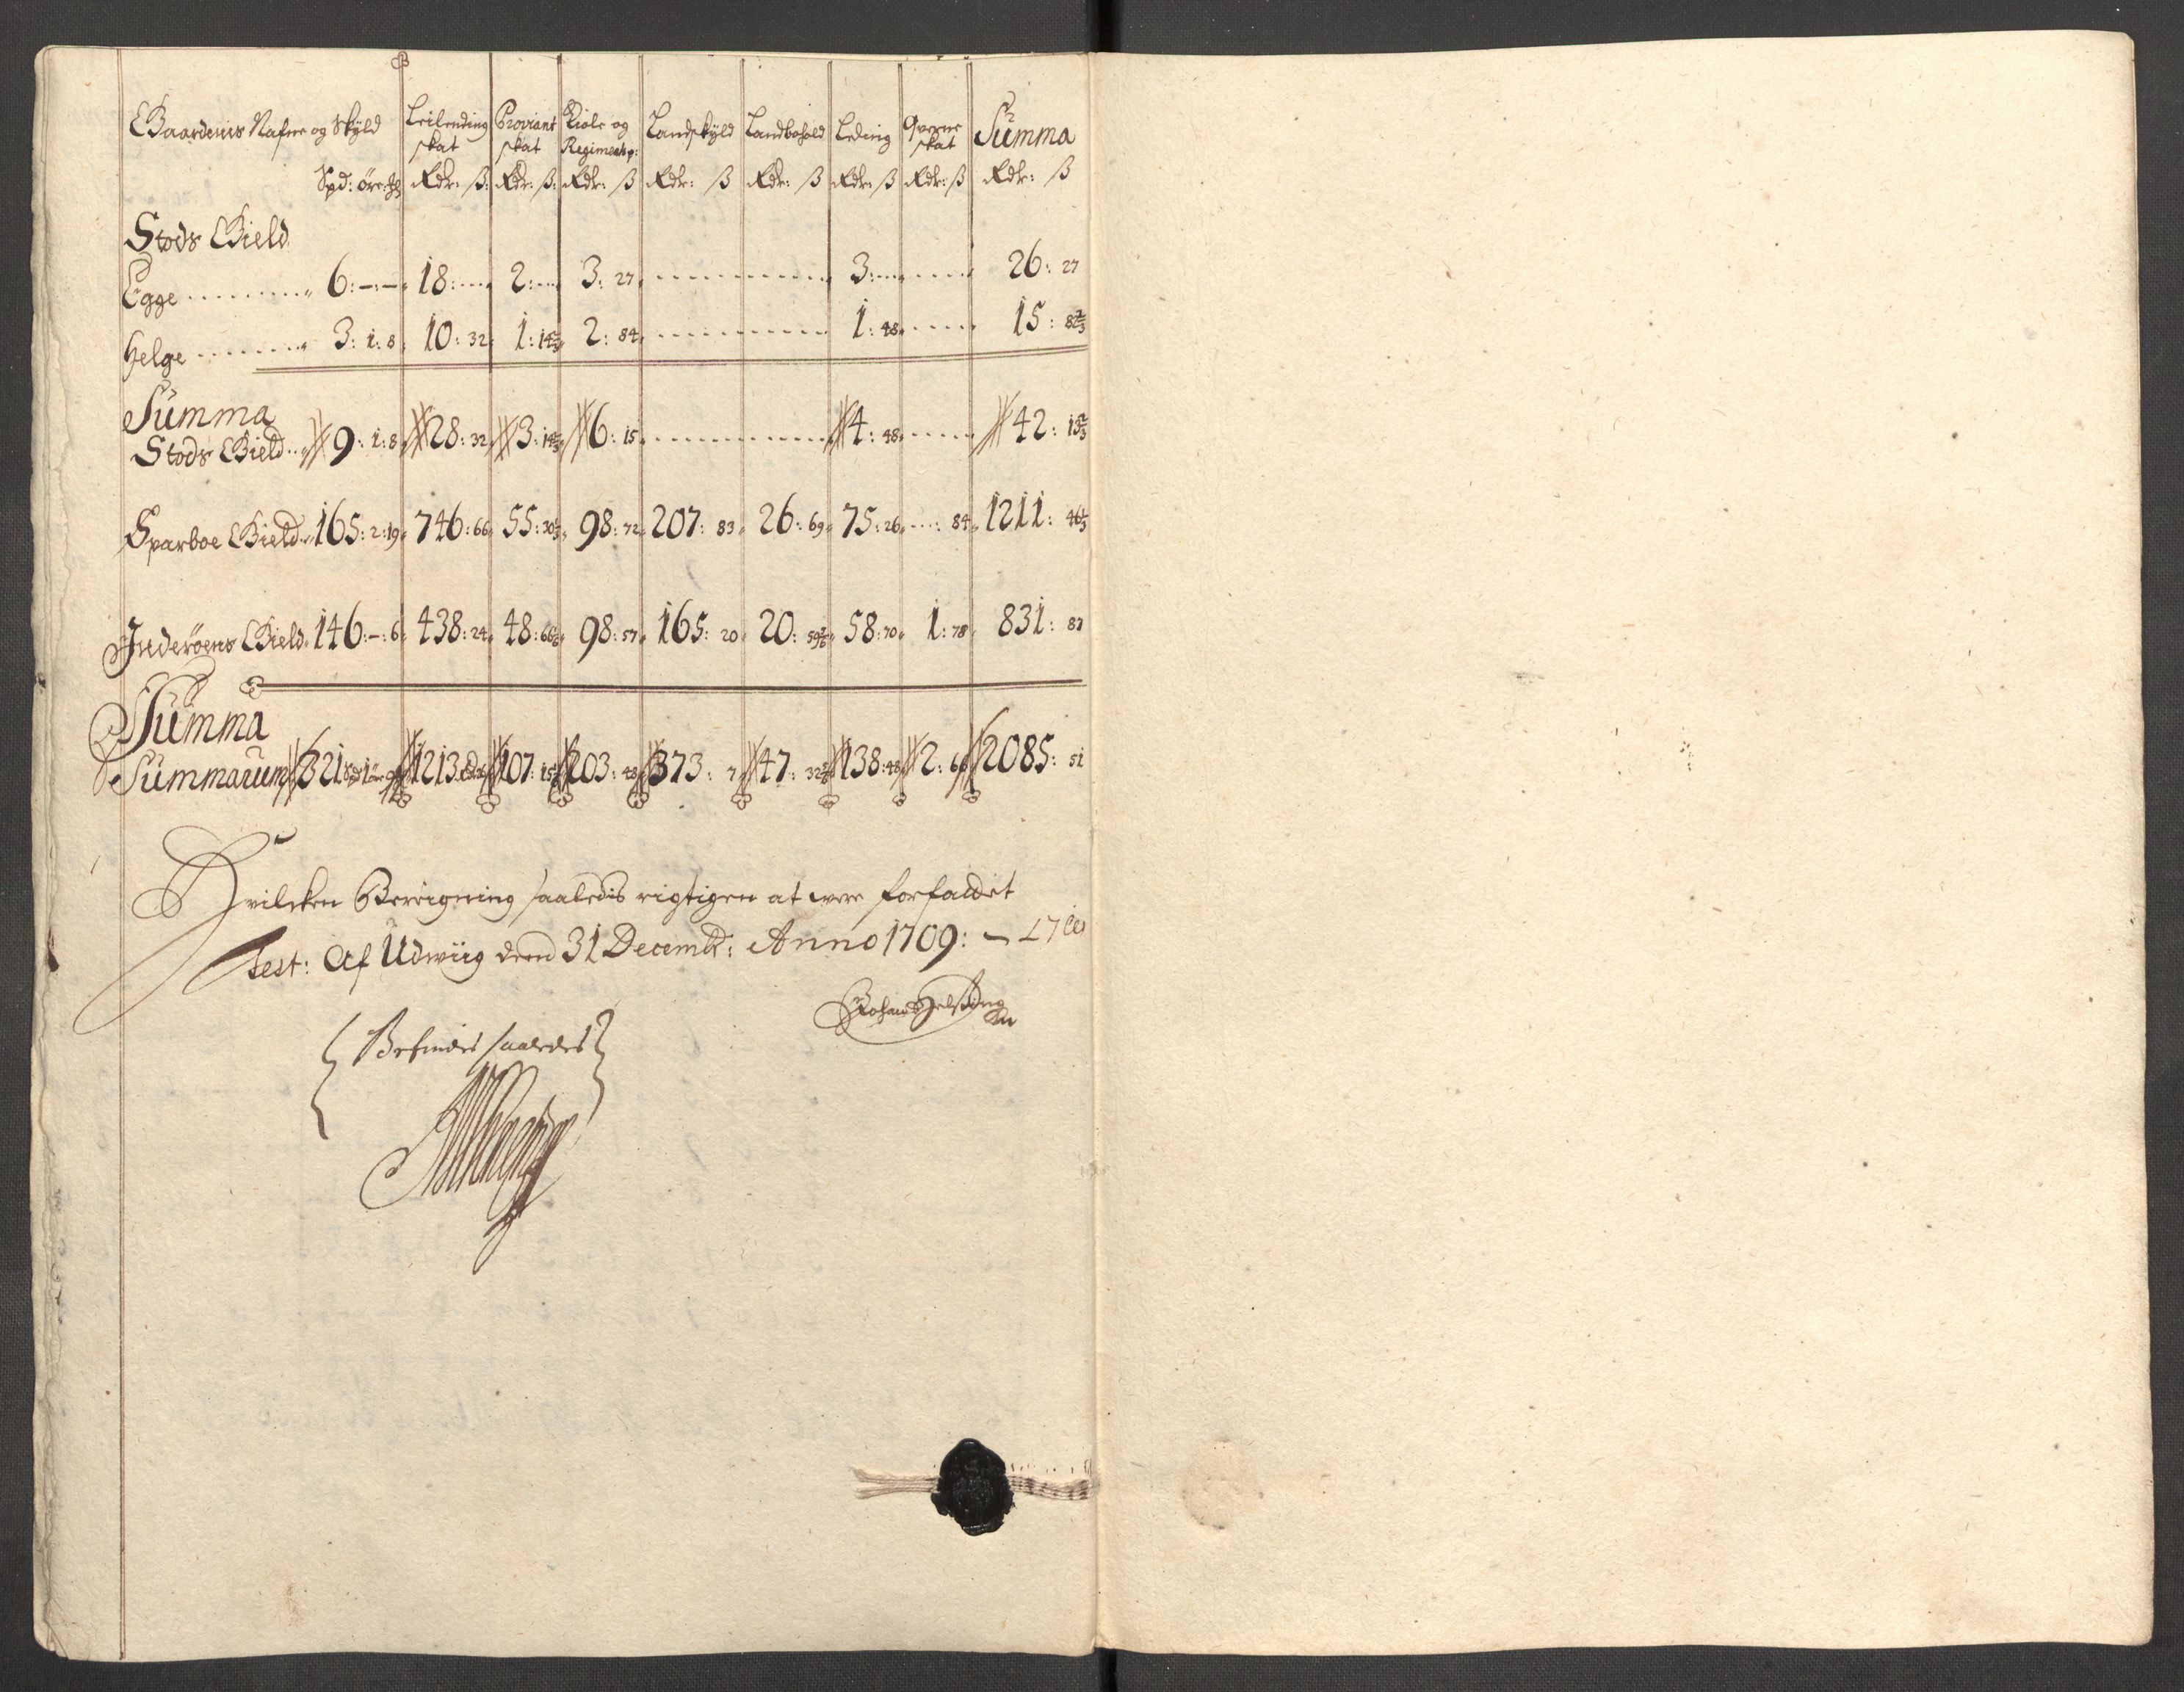 Gaardenis Nafne og Skyld Leilending skat Proviant skat Kiole og Regiments p: Landskyld Landbohold Leding Qverne skat Summa
Spd: öre: Rdr: ß: Rdr: ß: Rdr: ß Rdr: ß Rdr: ß Rdr: ß Rdr: ß Rdr: ß
Stods Gield
Egge 6:–:– 18: 2: 3: 27 3: 26: 27
Helge 3: 1: 8 10: 32 1: 14 2/3 2: 84 1: 48 15: 82 2/3
Summa
Stods Gield 9: 1: 8 28: 32 3: 14 2/3 6: 15 4: 48 42: 13 2/3
Sparboe Gield 165: 2: 19 746: 66 55: 30 1/3 98: 72 207: 83 26: 69 75: 26 84 1211: 46 1/3
Inderöens Gield 146:–: 6 438: 24 48: 66 98: 57 165: 20 20: 59 58: 70 1: 78 831: 87
Summa
Summarum 321 Spd 1 öre 9 1213: 26 107: 15 203: 48 373: 7 47: 32 138: 48 2: 66 2085: 51
Hvilcken Beregning saaledis rigtigen at were forfaldet
Test: Af Udwiig dend 31 Decembr: Anno 1709:
Befindes saaledes